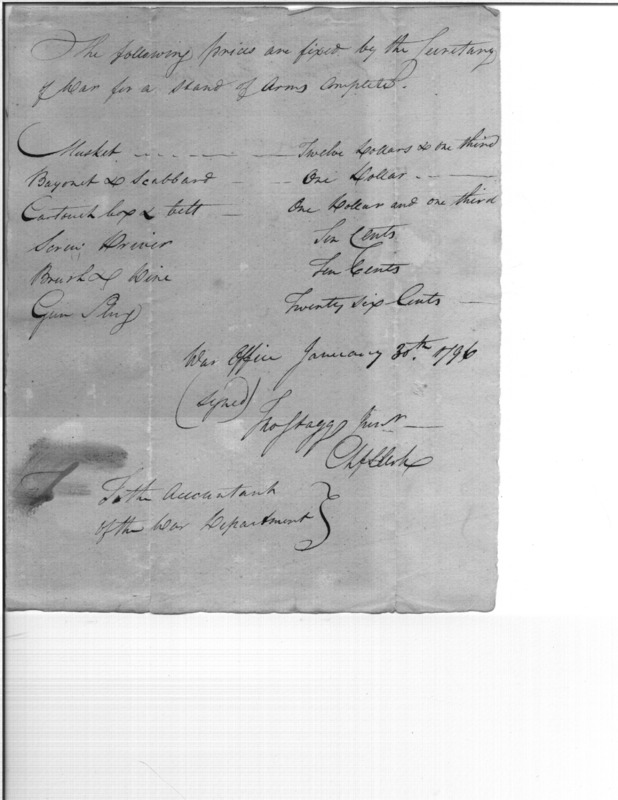 The following prices are fixed by the Secretary
of War for a Stand of Arms Complete.
Musket - - - - - - Twelve Dollars & one third
Bayonet & Scabbard - - - One Dollar - - -
Cartouch box & belt - One Dollar and one third
Screw Driver Ten Cents
Brush & Wire Ten Cents
Gun Sling Twenty six Cents -
War Office January 30th. 1796
(signed)
Jno Stagg Junr
Chf Clerk
To the Accountant
of the War Department }